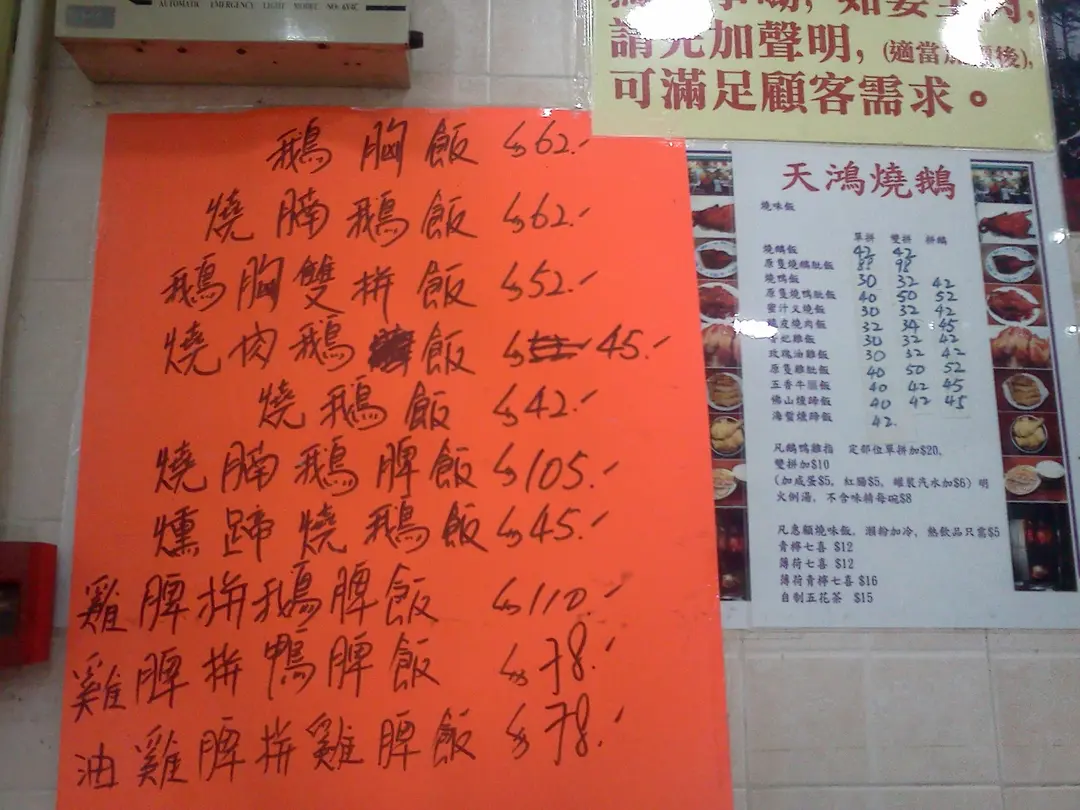 AUTOMATIC EMERGENCY LIGHT MODEL NO. 6V4C
請先加聲明,(適當加價後),
可滿足顧客需求。
鵝胸飯 $62.-
燒腩鵝飯 $62.-
鵝胸雙拼飯 $52.-
燒肉鵝飯 $45.-
燒鵝飯 $42.-
燒腩鵝脾飯 $105.-
燻蹄燒鵝飯 $45.-
雞脾拼鵝脾飯 $110.-
雞脾拼鴨脾飯 $78.-
油雞脾拼雞脾飯 $78.-
天鴻燒鵝
燒味飯
單拼 雙拼 拼鵝
燒鵝飯 42 42
原隻燒鵝髀飯 88 98
燒鴨飯 30 32 42
原隻燒鴨髀飯 40 50 52
蜜汁叉燒飯 30 32 42
皮燒肉飯 32 34 45
妃雞飯 30 32 42
玫瑰油雞飯 30 32 42
原隻雞髀飯 40 50 52
五香牛腩飯 40 42 45
佛山燻蹄飯 40 42 45
海蜇燻蹄飯 42.
凡鵝鴨雞指 定部位單拼加$20,
雙拼加$10
(加咸蛋$5, 紅腸$5, 罐裝汽水加$6) 明
火例湯, 不含味精每碗$8
凡惠顧燒味飯, 瀨粉加冷, 熱飲品只需$5
青檸七喜 $12
薄荷七喜 $12
薄荷青檸七喜 $16
自制五花茶 $15